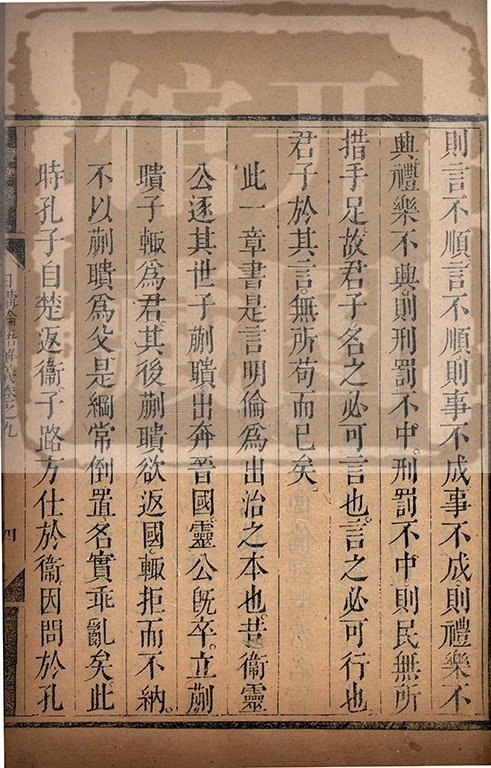 則言不順言不順則事不成事不成則禮樂不
興禮樂不興則刑罰不中刑罰不中則民無所
措手足故君子名之必可言也言之必可行也
君子於其言無所苟而已矣
此一章書是言明倫爲出治之本也昔衞靈
公逐其世子蒯聵出奔晉國靈公旣卒立蒯
聵子輙爲君其後蒯聵欲返國輙拒而不納
不以蒯聵爲父是綱常倒置名實乖亂矣此
時孔子自楚返衞子路方仕於衞因問於孔
日講論語解義卷之九
四